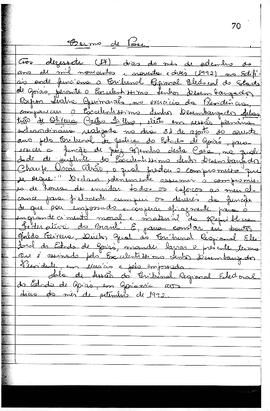 70
Termo de Posse
Aos dezessete (17) dias do mês de setembro do
ano de mil novecentos e noventa e dois (1992) no Edifí-
cio onde funciona o Tribunal Regional Eleitoral do Estado
de Goiás, perante o Excelentíssimo Senhor Desembargador
Guimarães, no exercício da Presidência,
compareceu o Excelentíssimo Senhor Desembargador
de Oliveira Castro Filho, eleito em sessão plenária
extraordinária realizada no dia 31 de agosto do corrente
ano pelo Tribunal de Justiça do Estado de Goiás, para
exercer a função de Juiz Membro desta Corte, na quali-
dade de suplente do Excelentíssimo Senhor Desembargador
o qual prestou o compromisso que
se segue: " Declaro solenemente assumir o compromis-
so de honra de envidar todos os esforços ao meu al-
cance para fielmente cumprir os deveres da função
de que sou empossado e cooperar eficazmente para o
engrandecimento moral e material da República
Federativa do Brasil. E, para constar eu
Ferreira, Diretor Geral do Tribunal Regional Elei-
toral do Estado de Goiás, mandei lavrar o presente termo
que é assinado pelo Excelentíssimo Senhor Desembargador
Presidente em exercício e pelo empossado.
Sala de Sessão do Tribunal Regional Eleitoral
do Estado de Goiás, em Goiânia aos
dias do mês de setembro de 1992.